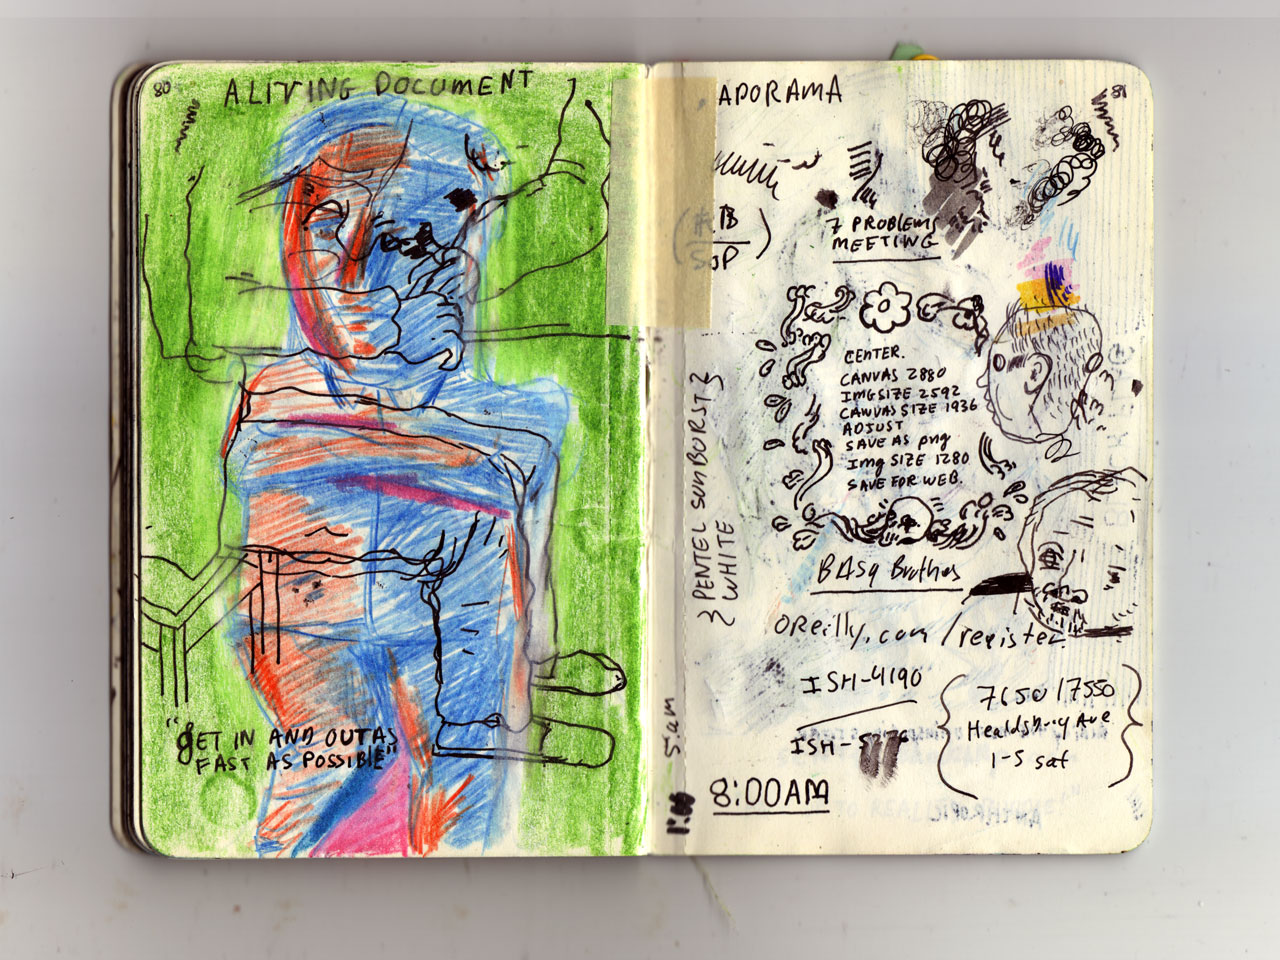 80
A LIVING DOCUMENT
"GET IN AND OUT AS
FAST AS POSSIBLE"
81
APORAMA
7 PROBLEMS
MEETING
CENTER.
CANVAS 2880
IMG SIZE 2592
CANVAS SIZE 1936
ADJUST
SAVE AS png
Img SIZE 1280
SAVE FOR WEB.
PENTEL SUNBURST
WHITE
BASq Brothes
OReilly.com/register
ISH-4190
ISH-
7650/7550
Healdsburg Ave
1-5 sat
5am
1:00
8:00AM